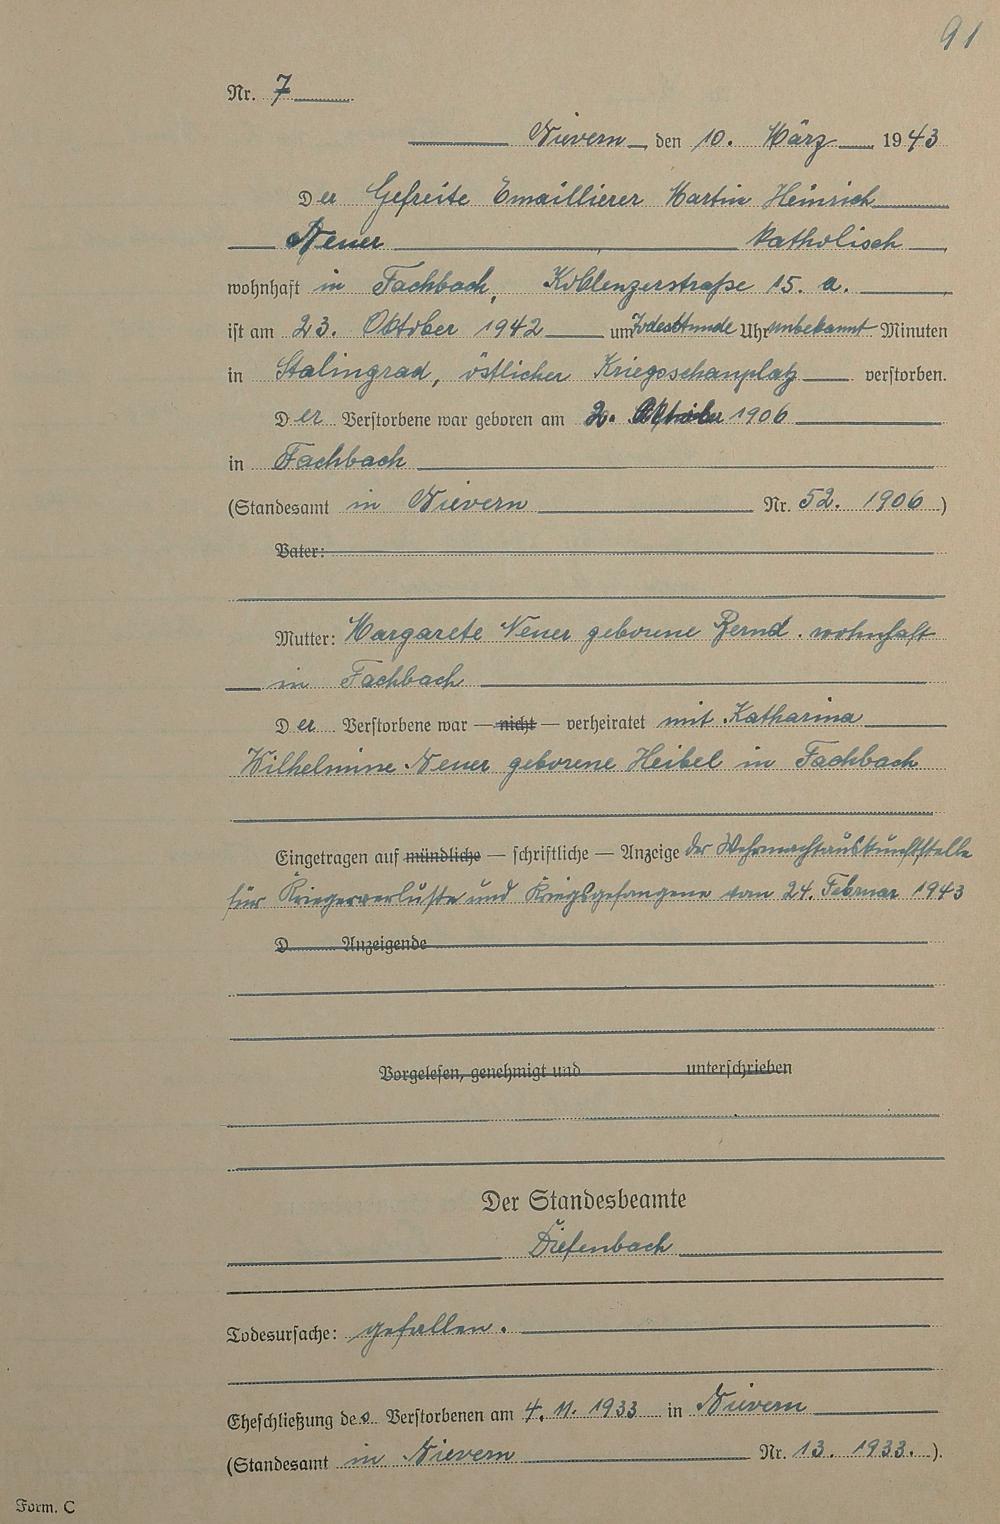 91
Nr. 7
Nievern, den 10. März 1943
Der Gefreite Emaillierer Martin Heinrich
Neuer katholisch,
wohnhaft in Fachbach, Koblenzerstraße 15. a.,
ist am 23. Oktober 1942 um Todesstunde Uhr unbekannt Minuten
in Stalingrad, östlicher Kriegsschauplatz verstorben.
Der Verstorbene war geboren am 2. Oktober 1906
in Fachbach
(Standesamt in Nievern Nr. 52. 1906)
Vater:
Mutter: Margarete Neuer geborene Bernd. wohnhaft
in Fachbach
Der Verstorbene war — nicht — verheiratet mit Katharina
Wilhelmine Neuer geborene Heibel in Fachbach
Eingetragen auf mündliche — schriftliche — Anzeige der Wehrmachtauskunftstelle
für Kriegerverluste und Kriegsgefangene vom 24. Februar 1943
D Anzeigende
Vorgelesen, genehmigt und unterschrieben
Der Standesbeamte
Diefenbach
Todesursache: gefallen.
Eheschließung des Verstorbenen am 4. 11. 1933 in Nievern
(Standesamt in Nievern Nr. 13. 1933.).
Form. C